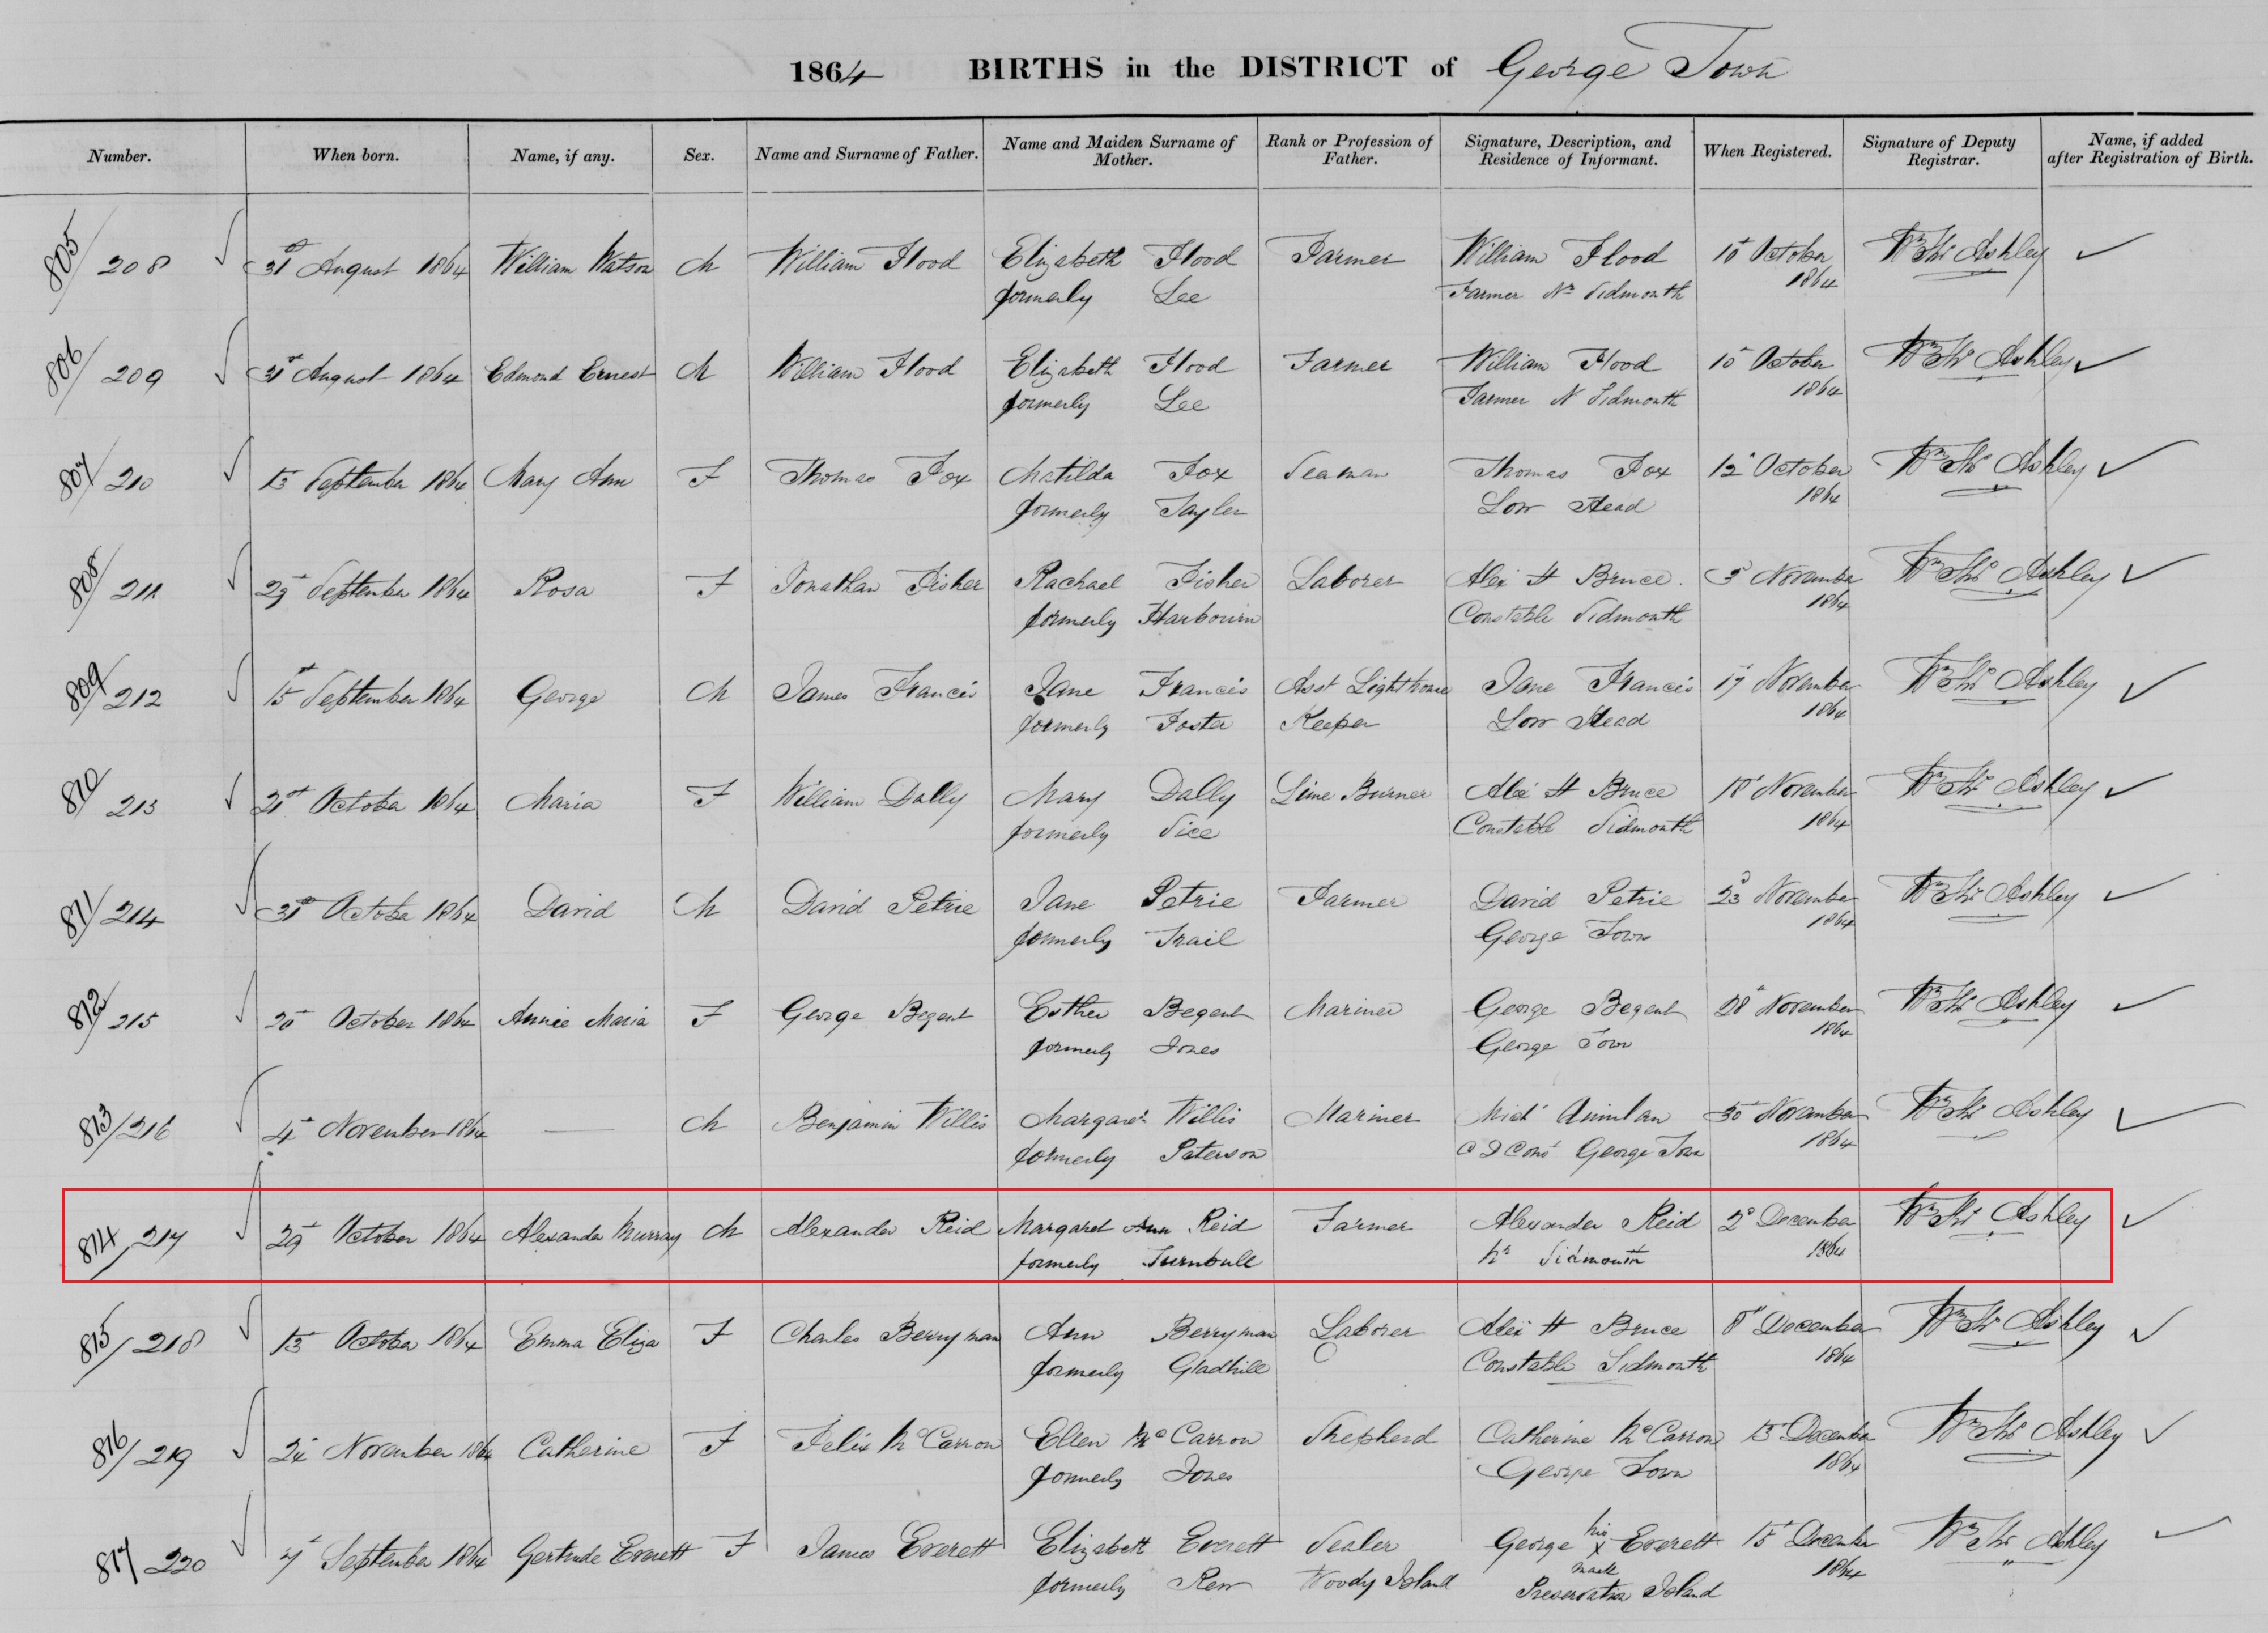 1864 BIRTHS in the DISTRICT of George Town
Number. When born. Name, if any. Sex. Name and Surname of Father. Name and Maiden Surname of Mother. Rank or Profession of Father. Signature, Description, and Residence of Informant. When Registered. Signature of Deputy Registrar. Name, if added after Registration of Birth.
805/208 31st August 1864 William Watson M William Flood Elizabeth Flood Farmer William Flood 10th October Ashley
formerly Lee Farmer Nr Sidmouth 1864
806/209 31st August 1864 Edmond Ernest M William Flood Elizabeth Flood Farmer William Flood 10th October Ashley
formerly Lee Farmer N Sidmouth 1864
807/210 September 1864 Mary Ann F Thomas Fox Matilda Fox Seaman Thomas Fox 12th October Ashley
formerly Tayler Low Head 1864
808/211 29th September 1864 Rosa F Jonathan Fisher Rachael Fisher Laborer Alex H Bruce 3d November Ashley
formerly Harbourn Constable Sidmouth 1864
809/212 September 1864 George M James Francis Jane Francis Asst Lighthouse Jane Francis 17th November Ashley
formerly Foster Keeper Low Head 1864
810/213 21st October 1864 Maria F William Dally Mary Dally Lime Burner Alex H Bruce 18th November Ashley
formerly Vice Constable Sidmouth 1864
811/214 31st October 1864 David M David Petrie Jane Petrie Farmer David Petrie 23d November Ashley
formerly Trail George Town 1864
812/215 20th October 1864 Annie Maria F George Begent Esther Begent Mariner George Begent 28th November Ashley
formerly Jones George Town 1864
813/216 4th November 1864 — M Benjamin Willis Margaret Willis Mariner Michl Quinlan 30th November Ashley
formerly Paterson George Town 1864
814/217 29th October 1864 Alexander Murray M Alexander Reid Margaret Ann Reid Farmer Alexander Reid 2d December Ashley
formerly Turnbull Nr Sidmouth 1864
815/218 October 1864 Emma Eliza F Charles Berryman Ann Berryman Laborer Alex H Bruce 8th December Ashley
formerly Gladhill Constable Sidmouth 1864
816/219 24th November 1864 Catherine F Felix McCarron Ellen McCarron Shepherd Catherine McCarron December Ashley
formerly Jones George Town 1864
817/220 7th September 1864 Gertrude Everett F James Everett Elizabeth Everett Sealer George his x mark Everett December Ashley
formerly Rew Woody Island Preservation Island 1864